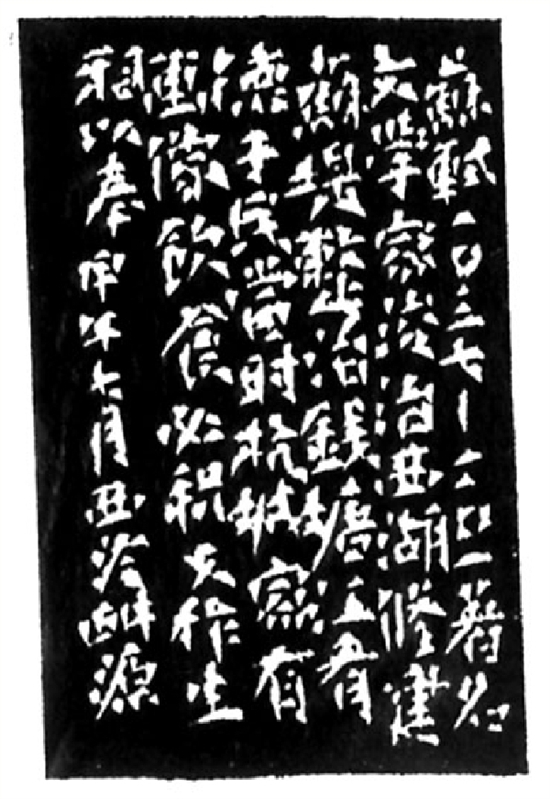 蘇軾一〇三七—一一〇一著名
文學家浚治西湖修建
蘇堤整治錢塘江有
德于民當时杭城家有
畫像飲食必祝又作生
祠以奉甲午七月西泠源